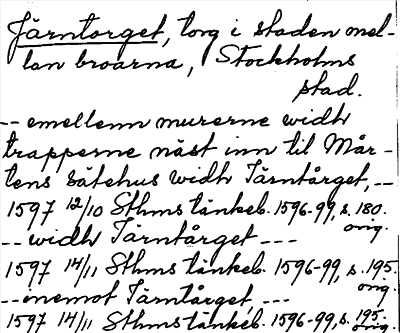 Järntorget, torg i staden mel-
lan broarna, Stockholms
stad.
-- emellenn murerne widh
trapperne näst inn til Mår-
tens sätehus widh Järntårget, --
1597 12/10 Sthms tänkeb. 1596-99, s. 180.
orig.
-- widh Järntårget ---
1597 14/11 Sthms tänkeb. 1596-99, s. 195.
orig.
-- enemot Järntårget, ---
1597 14/11 Sthms tänkeb. 1596-99, s. 195.
orig.